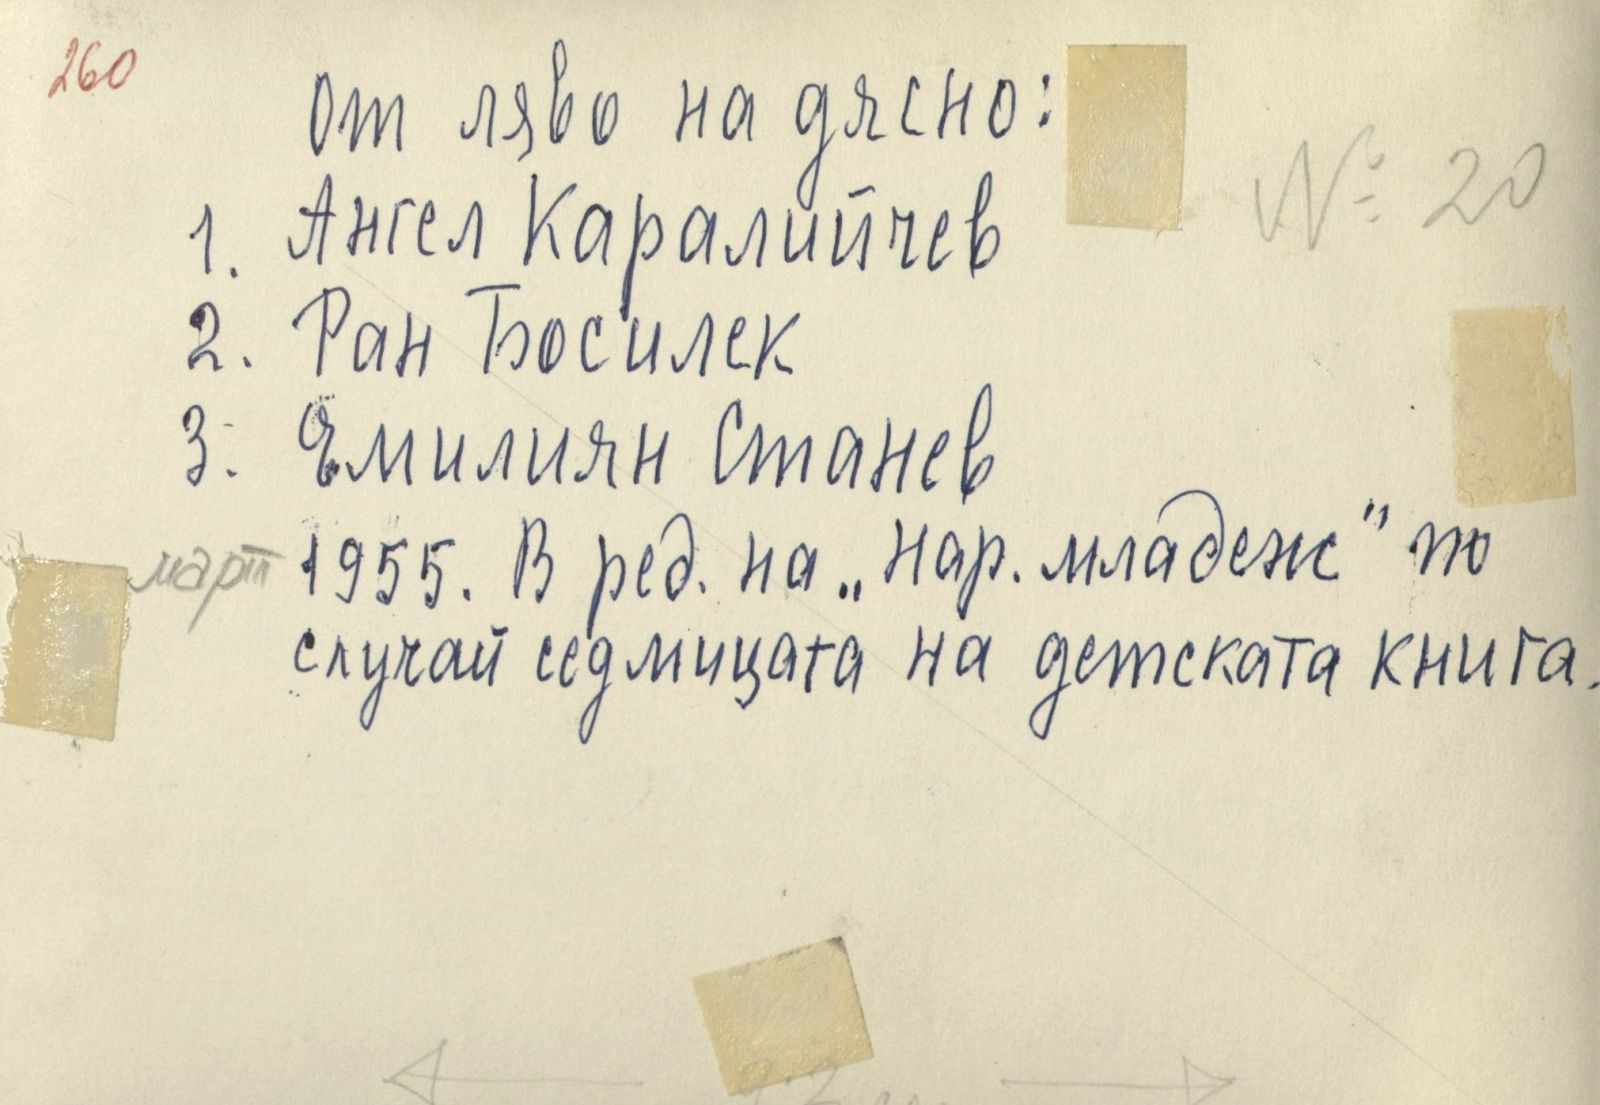 260
От ляво на дясно:
№ 20
1. Ангел Каралийчев
2. Ран Босилек
3. Емилиян Станев
март 1955. В ред. на „Нар. младеж" по
случай седмицата на детската книга.